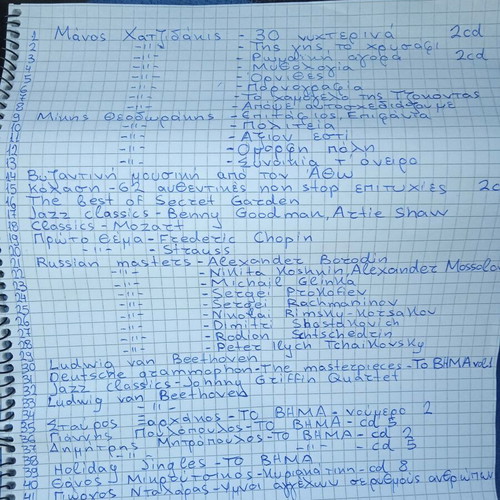 1 Μάνος Χατζιδάκις - 30 νυχτερινά 2cd
2 -11- - Της γης το χρυσάφι
3 -11- - Ρωμαϊκή αγορά 2cd
4 -11- - Μυθολογία
5 -11- - Όρνιθες
6 -11- - Πορνογραφία
7 -11- - Το χαμόγελο της Τζοκόντας
8 -11- - Απόψε αυτοσχεδιάζουμε
9 Μίκης Θεοδωράκης - Επιτάφιος, Επιφάνια
10 -11- - Πολιτεία
11 -11- - Άξιον εστί
12 -11- - Όμορφη πόλη
13 -11- - Συνοικία τ' όνειρο
14 Βυζαντινή μουσική από τον Άθω
15 Κόλαση - 62 αυθεντικές non stop επιτυχίες 2c
16 The best of Secret Garden
17 Jazz classics - Benny Goodman, Artie Shaw
18 Classics - Mozart
19 Πρώτο Θέμα - Frederic Chopin
20 -11- - Strauss
21 Russian masters - Alexander Borodin
22 -11- - Nikita Koshkin, Alexander Mossolo
23 -11- - Michail Glinka
24 -11- - Sergei Prokofiev
25 -11- - Sergei Rachmaninov
26 -11- - Nikolai Rimsky-Korsakov
27 -11- - Dimitri Shostakovich
28 -11- - Rodion Schtschedrin
29 -11- - Peter Ilych Tchaikovsky
30 Ludwig van Beethoven
31 Deutsche grammophon - The masterpieces - Το ΒΗΜΑ vol1
32 Jazz classics - Johnny Griffin Quartet
33 Ludwig van Beethoven
34 -11-
35 Σταύρος Ξαρχάκος - ΤΟ ΒΗΜΑ - νούμερο 2
36 Γιάννης Πουλόπουλος - ΤΟ ΒΗΜΑ - cd 5
37 Δημήτρης Μητρόπουλος - ΤΟ ΒΗΜΑ - cd 2
38 -11- - cd 5
39 Holiday Jingles - ΤΟ ΒΗΜΑ
40 Θάνος Μικρούτσικος - Κυριακάτικη - cd 8
Γιώργος Νταλάρας - Ύμνοι αγγέλων σε ρυθμούς ανθρώπων